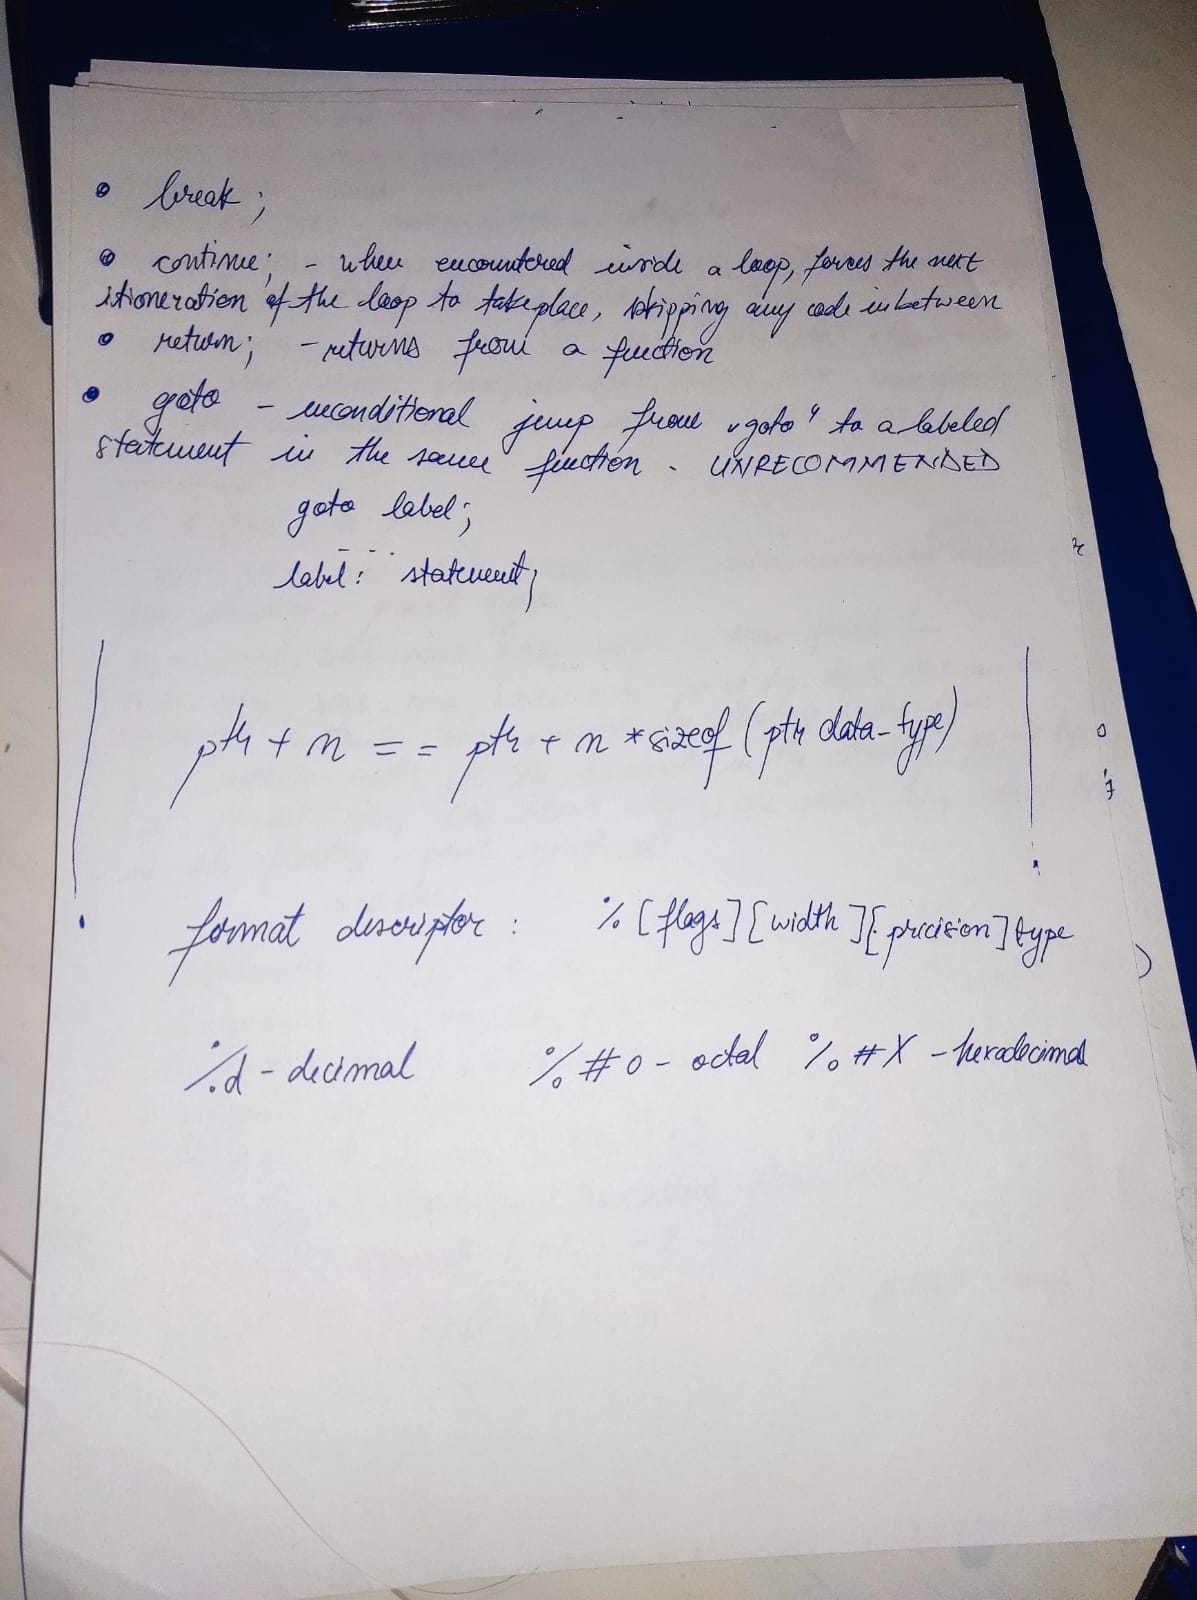 break;
continue; - when encountered inside a loop, forces the next
itioneration of the loop to take place, skipping any code inbetween
return; - returns from a function
goto - unconditional jump from „goto“ to a labeled
statement in the same function. UNRECOMMENDED
goto label;
...
label: statement;
ptr + n == ptr + n * sizeof (ptr data-type)
format descriptor: % [flags] [width] [.precision] type
%d - decimal %#o - octal %#X - hexadecimal